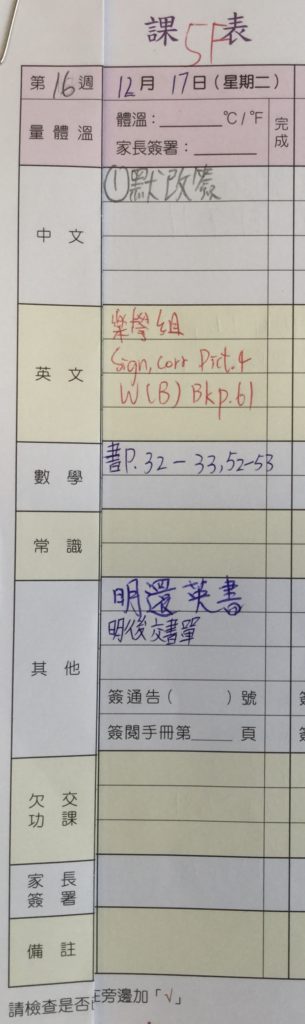 課5F表
第16週 12月 17日(星期二)
量體溫 體溫：______℃/℉ 完成
家長簽署：______
中文 ①默改簽
英文 樂學組
Sign, corr Dict.4
W(B) Bkp.61
數學 書P.32-33,52-53
常識
其他 明還英書
明後交書單
簽通告( )號
簽閱手冊第____頁
欠交功課
家長簽署
備註
請檢查是否
在旁邊加「√」